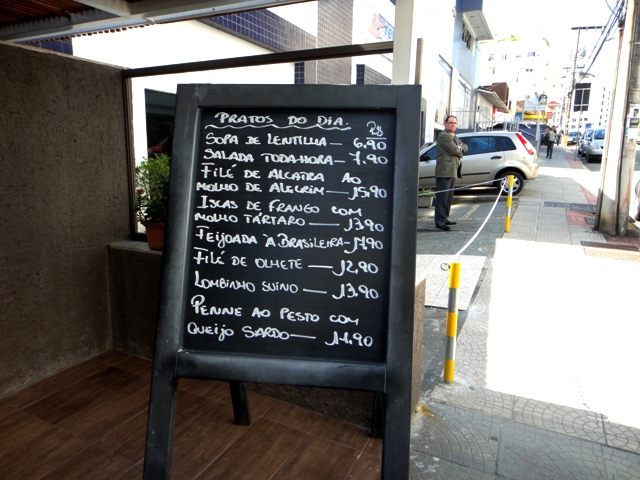 PRATOS DO DIA.
R$
SOPA DE LENTILHA — 6,90
SALADA TODA HORA — 7,90
FILÉ DE ALCATRA AO
MOLHO DE ALECRIM — 15,90
ISCAS DE FRANGO COM
MOLHO TÁRTARO — 13,90
FEIJOADA À BRASILEIRA — 17,90
FILÉ DE OLHETE — 12,90
LOMBINHO SUÍNO — 13,90
PENNE AO PESTO COM
QUEIJO SARDO — 14,90